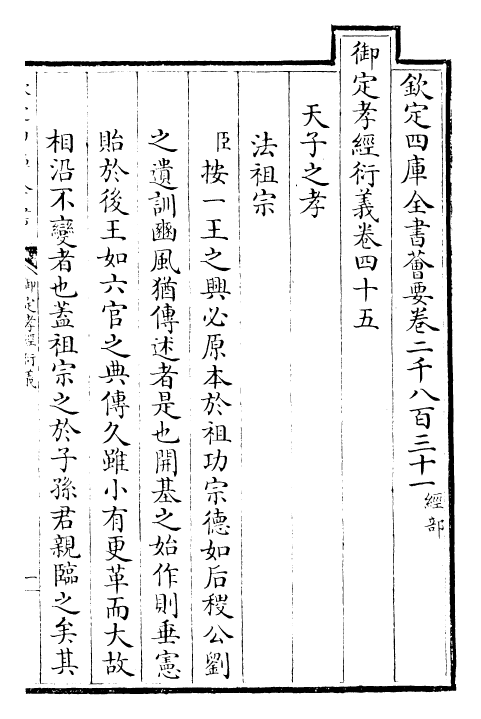 欽定四庫全書薈要卷二千八百三十一 經部
御定孝經衍義卷四十五
天子之孝
法祖宗
臣按一王之興必原本於祖功宗德如后稷公劉
之遺訓豳風猶傳述者是也開基之始作則垂憲
貽於後王如六官之典傳久雖小有更革而大故
相沿不變者也蓋祖宗之於子孫君親臨之矣其
御定孝經衍義
一